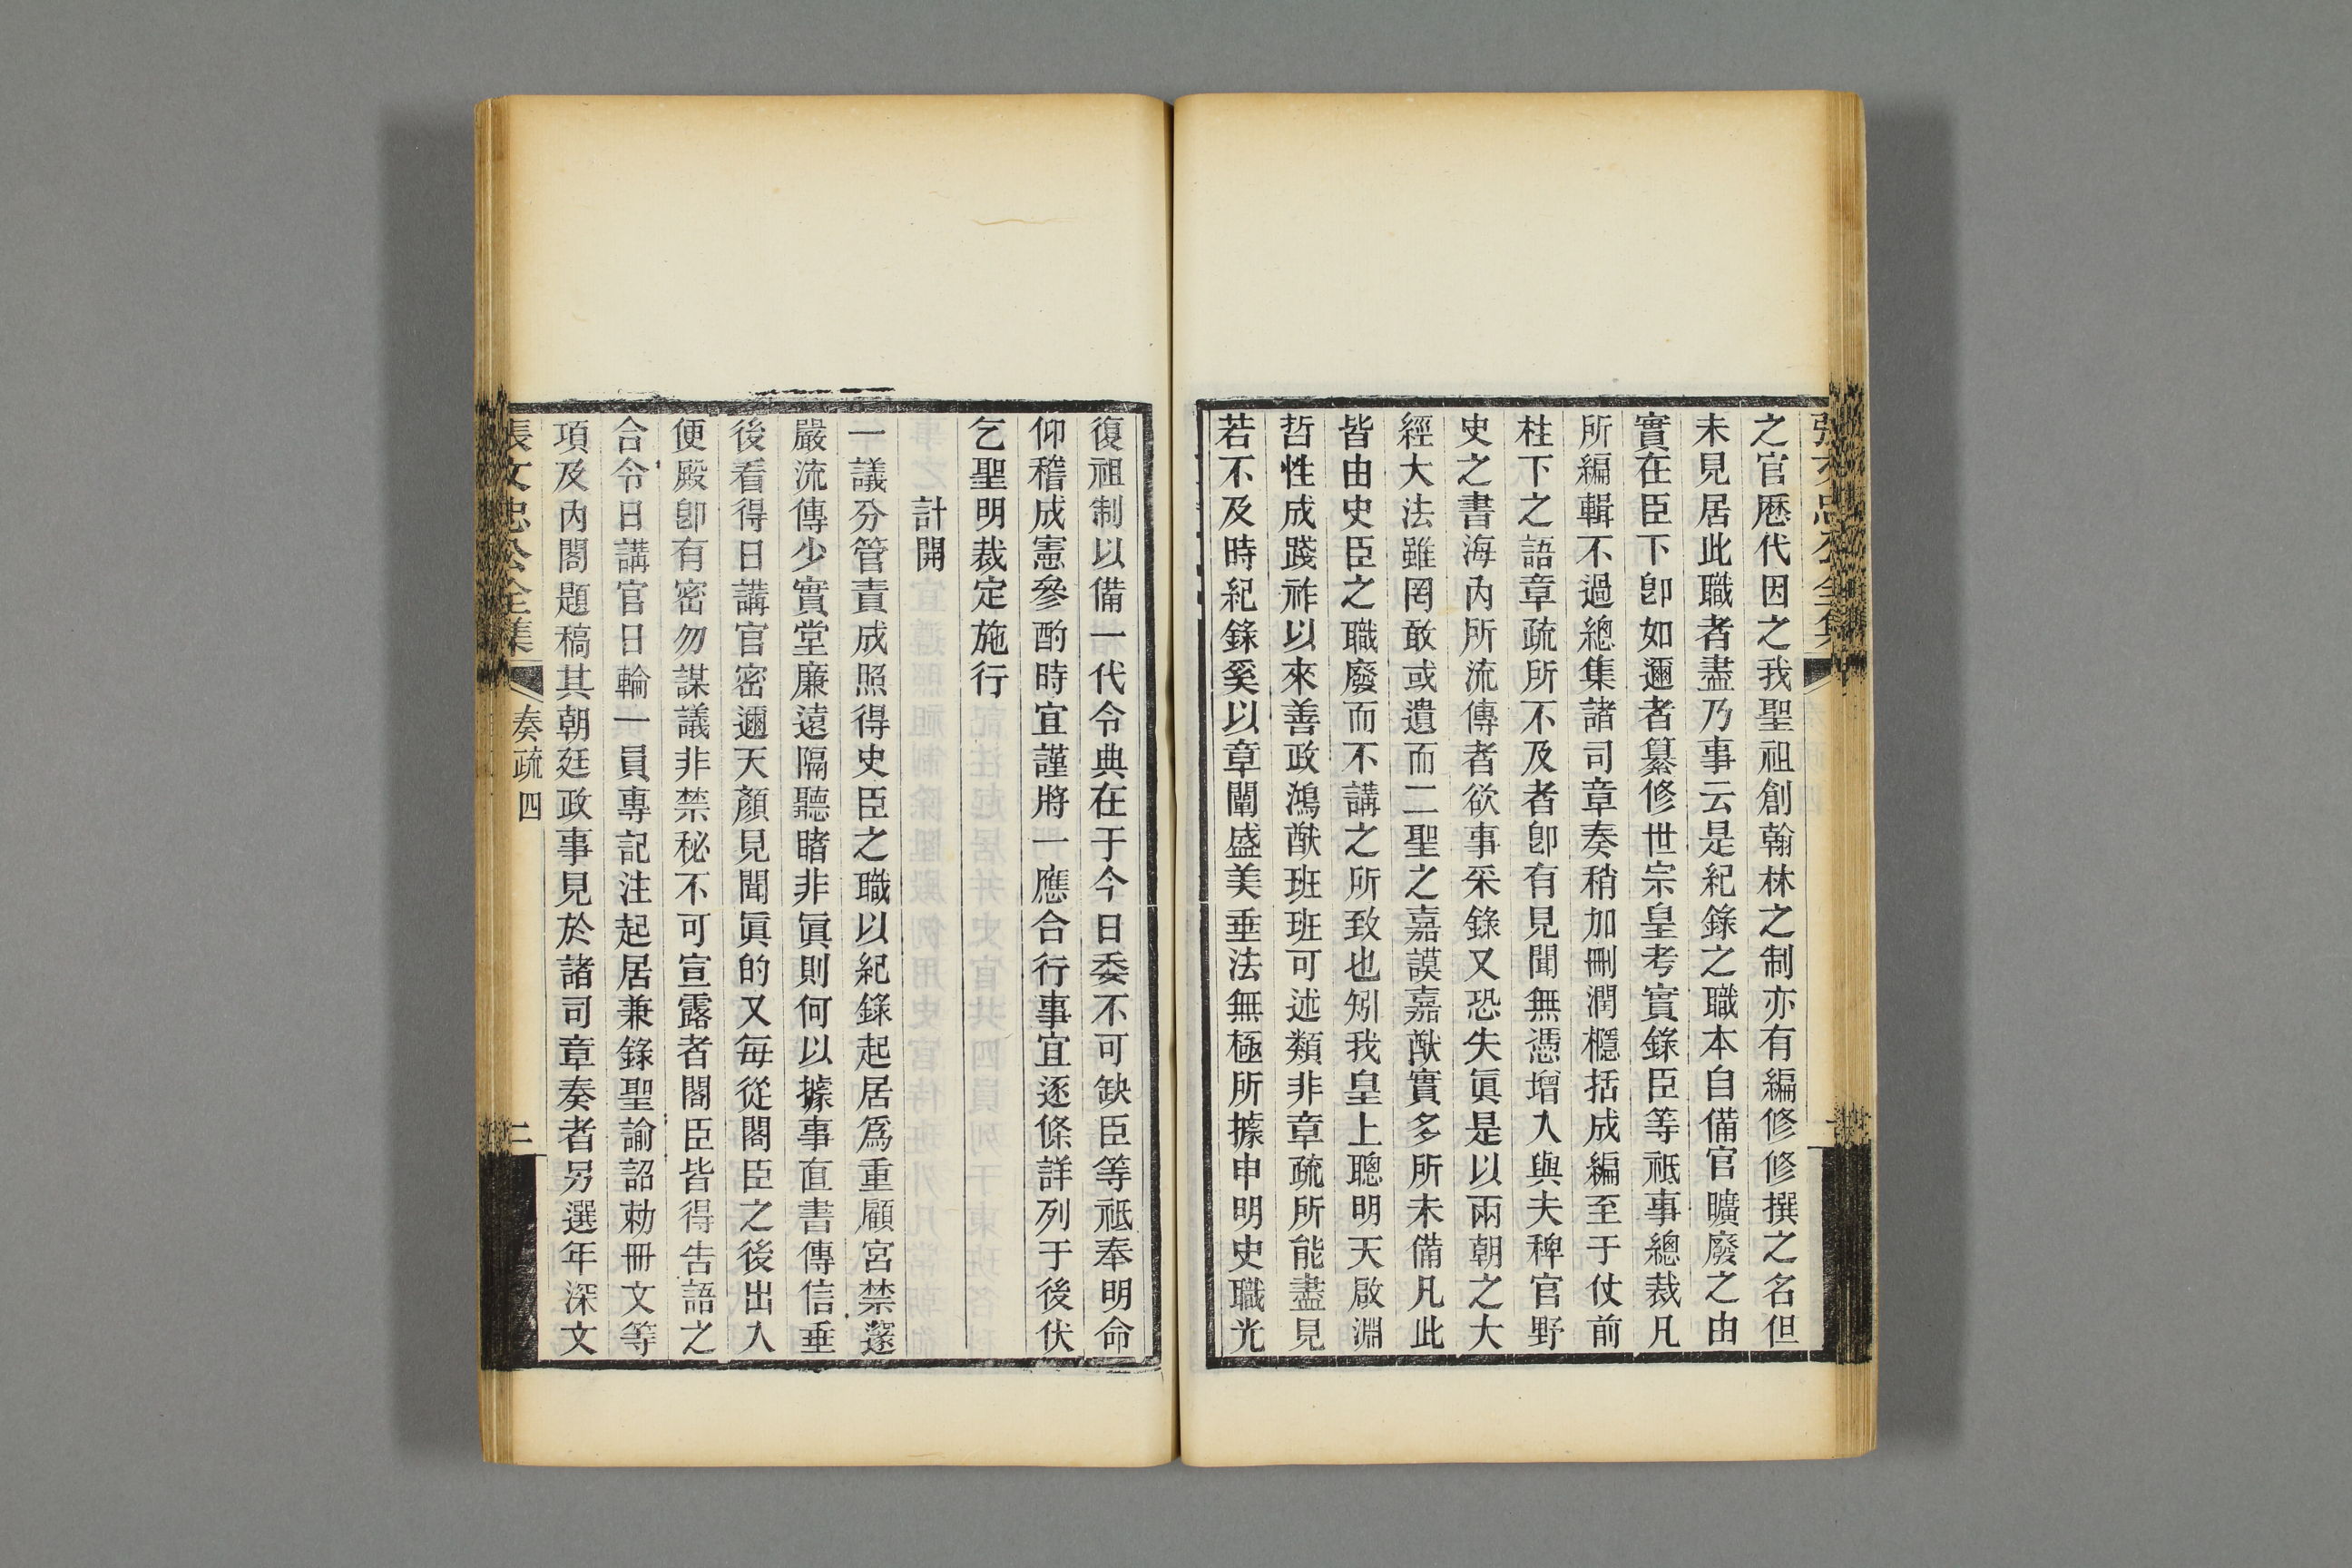 之官歷代因之我聖祖創翰林之制亦有編修修撰之名但
未見居此職者盡乃事云是紀錄之職本自備官曠廢之由
實在臣下卽如邇者纂修世宗皇考實錄臣等祗事總裁凡
所編輯不過總集諸司章奏稍加刪潤檼括成編至于仗前
柱下之語章疏所不及者卽有見聞無憑增入與夫稗官野
史之書海內所流傳者欲事采錄又恐失眞是以兩朝之大
經大法雖罔敢或遺而二聖之嘉謨嘉猷實多所未備凡此
皆由史臣之職廢而不講之所致也矧我皇上聰明天啟淵
哲性成踐祚以來善政鴻猷班班可述類非章疏所能盡見
若不及時紀錄奚以章闡盛美垂法無極所據申明史職光
復祖制以備一代令典在于今日委不可缺臣等祗奉明命
仰稽成憲參酌時宜謹將一應合行事宜逐條詳列于後伏
乞聖明裁定施行
計開
一議分管責成照得史臣之職以紀錄起居爲重顧宮禁邃
嚴流傳少實堂廉遠隔聽睹非眞則何以據事直書傳信垂
後看得日講官密邇天顏見聞眞的又每從閣臣之後出入
便殿卽有密勿謀議非禁秘不可宣露者閣臣皆得告語之
合令日講官日輪一員專記注起居兼錄聖諭詔勅冊文等
項及內閣題稿其朝廷政事見於諸司章奏者另選年深文
張文忠公全集 奏疏四 二